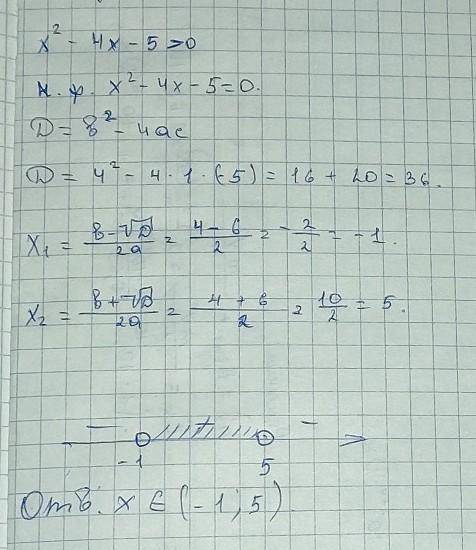 x² - 4x - 5 > 0
н. ф. x² - 4x - 5 = 0.
D = в² - 4ac
D = 4² - 4 · 1 · (-5) = 16 + 20 = 36.
x₁ = (в - √D)/2a = (4 - 6)/2 = -2/2 = -1.
x₂ = (в + √D)/2a = (4 + 6)/2 = 10/2 = 5.
- + -
-1 5
Отв: x ∈ (-1; 5).